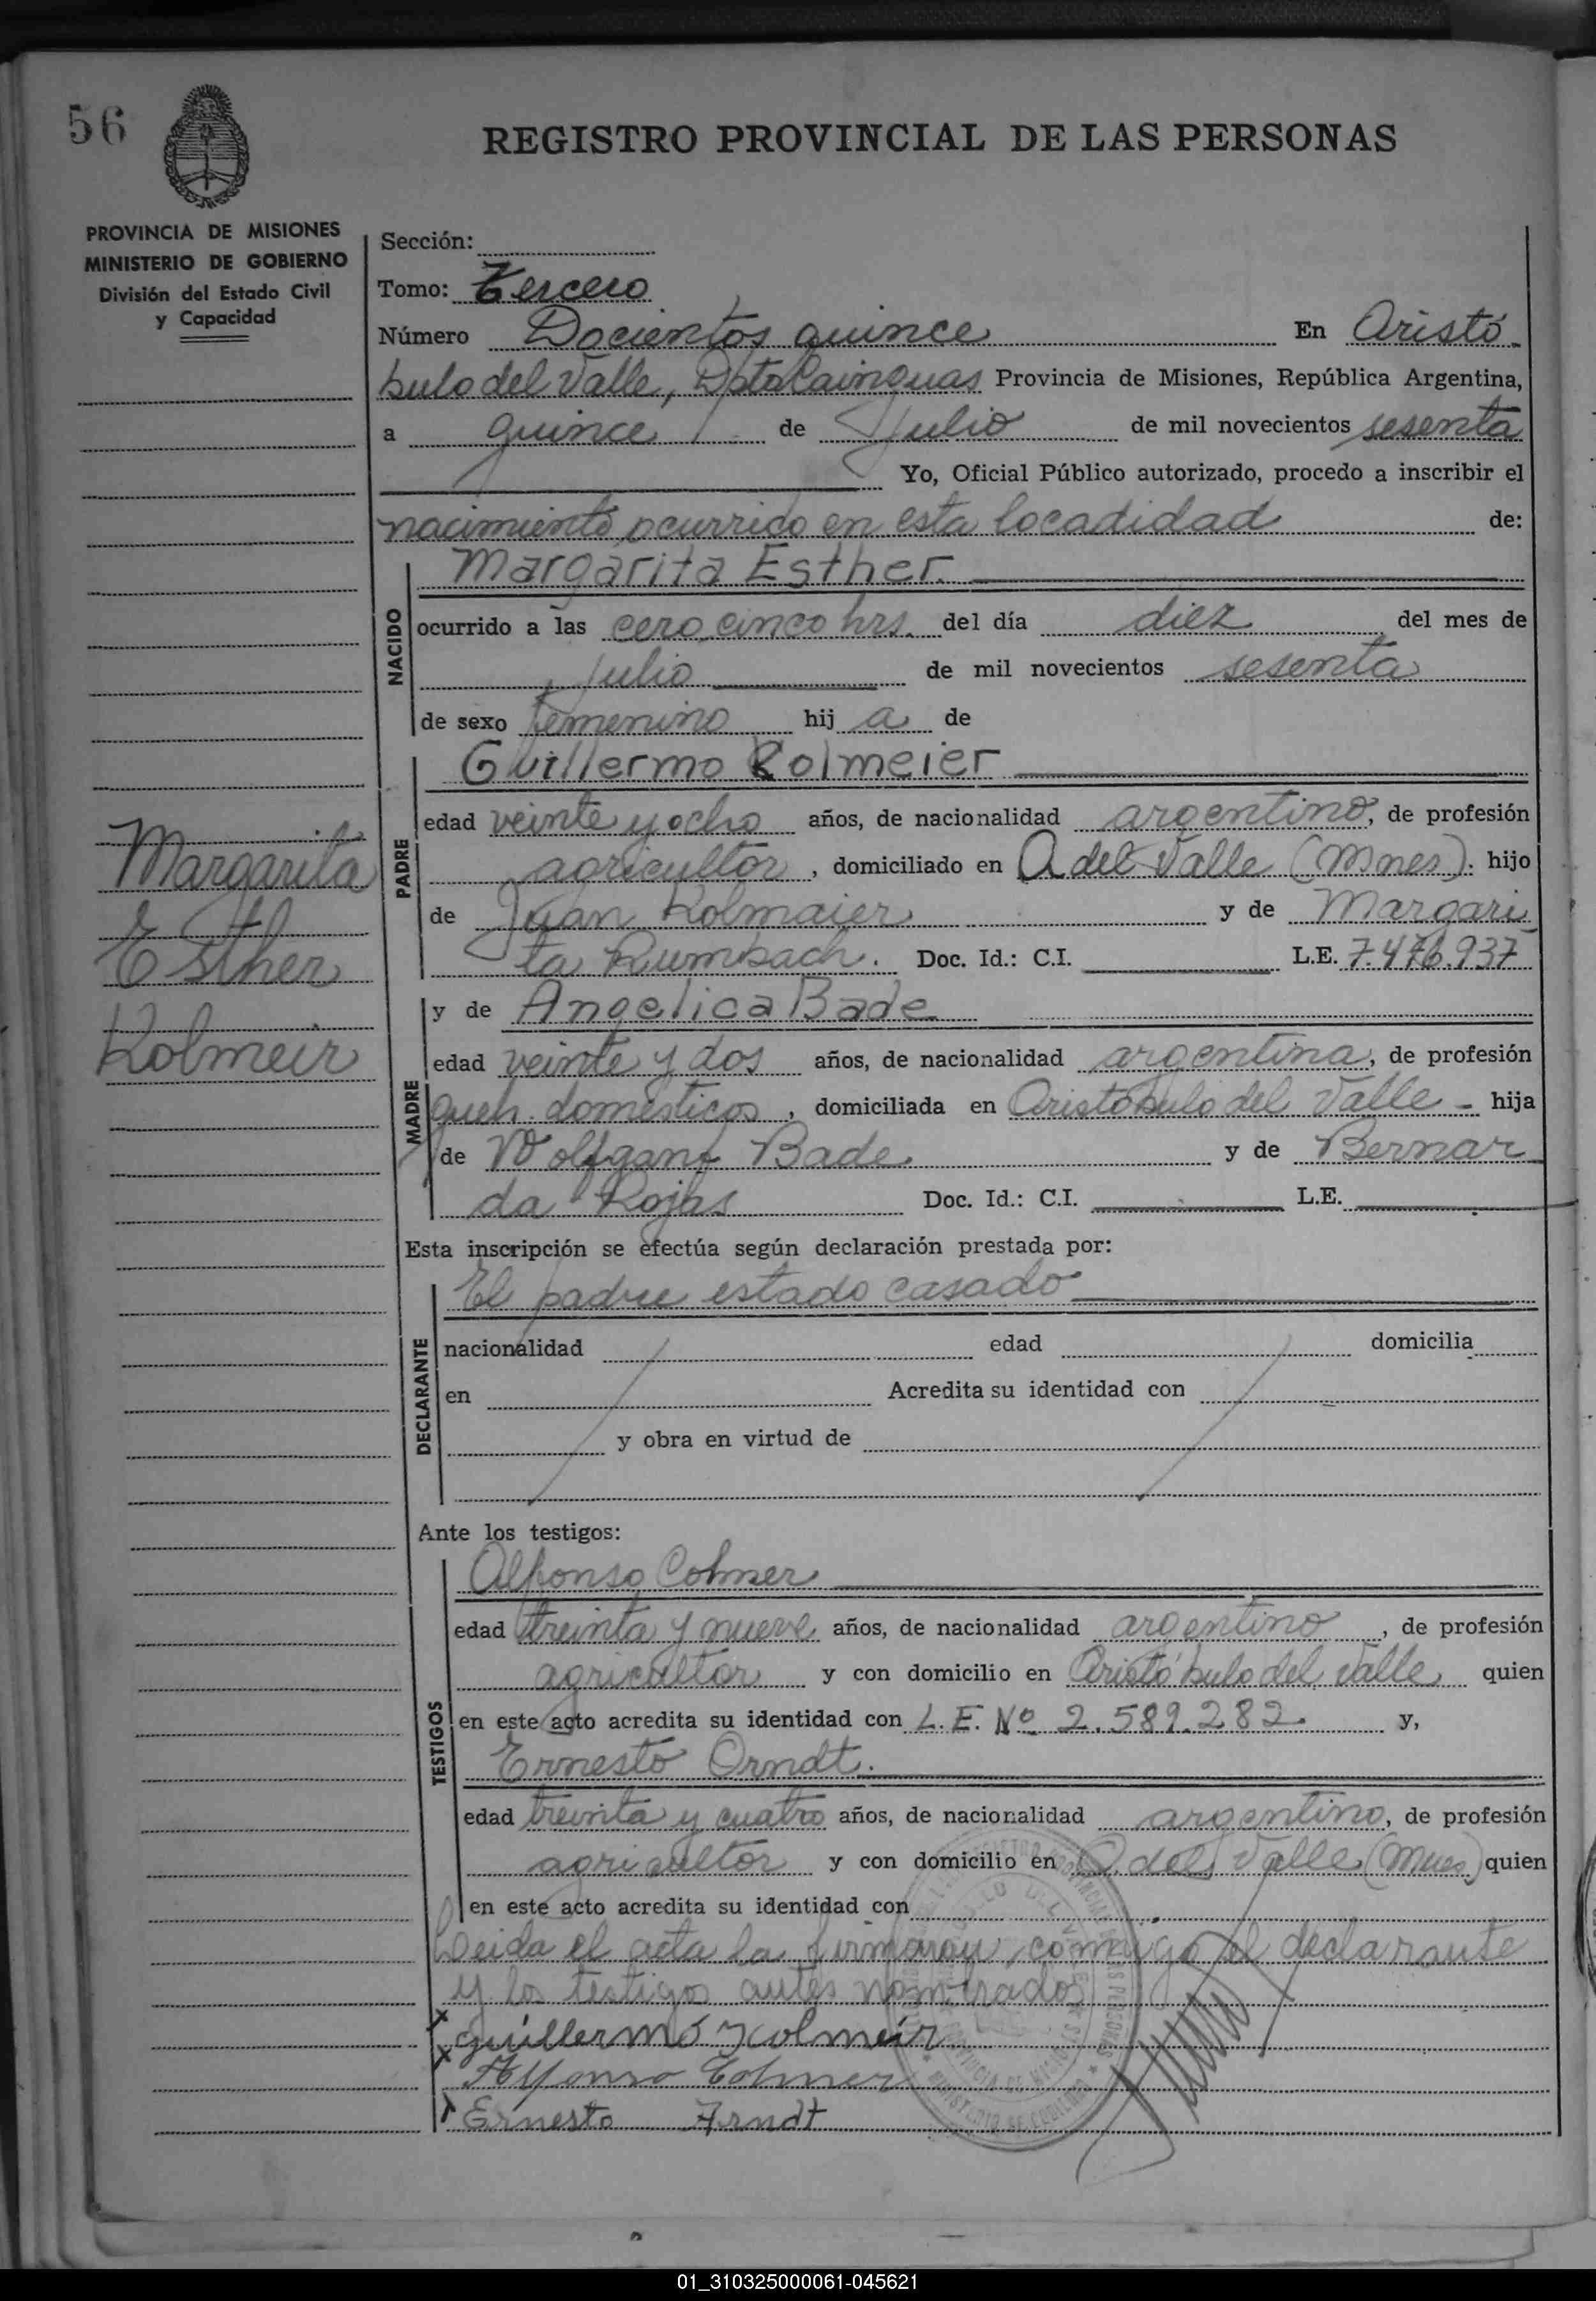 56
REGISTRO PROVINCIAL DE LAS PERSONAS
PROVINCIA DE MISIONES
MINISTERIO DE GOBIERNO
División del Estado Civil
y Capacidad
Sección:
Tomo: Tercero
Número Docientos quince En Aristó
bulo del Valle, Dpto Cainguas Provincia de Misiones, República Argentina,
a quince de Julio de mil novecientos sesenta
Yo, Oficial Público autorizado, procedo a inscribir el
nacimiento ocurrido en esta locadidad de:
NACIDO
Margarita Esther
ocurrido a las cero cinco hrs. del día diez del mes de
julio de mil novecientos sesenta
de sexo femenino hij a de
PADRE
Guillermo Kolmeier
edad veinte y ocho años, de nacionalidad argentino, de profesión
agricultor, domiciliado en A del Valle (Mnes). hijo
de Juan Kolmaier y de Margari
ta Rumbach. Doc. Id.: C.I. L.E. 7.476.937
Margarita
Esther
Kolmeir
MADRE
y de Angelica Bade
edad veinte y dos años, de nacionalidad argentina, de profesión
queh. domésticos, domiciliada en Aristóbulo del Valle - hija
de Wolfgant Bade y de Bernar
da Rojas Doc. Id.: C.I. L.E.
Esta inscripción se efectúa según declaración prestada por:
DECLARANTE
El padre estado casado
nacionalidad edad domicilia
en Acredita su identidad con
y obra en virtud de
Ante los testigos:
TESTIGOS
Alfonso Cohner
edad treinta y nueve años, de nacionalidad argentino, de profesión
agricultor y con domicilio en Aristóbulo del Valle quien
en este acto acredita su identidad con L.E. Nº 2.589.282. y,
Ernesto Orndt.
edad treinta y cuatro años, de nacionalidad argentino, de profesión
agricultor y con domicilio en A del Valle (Mnes) quien
en este acto acredita su identidad con
Leida el acta la firmaron conmigo el declarante
y los testigos antes nombrados
x guillermo Kolmeir
x Alfonso Cohner
x Ernesto Arndt
01_310325000061-045621